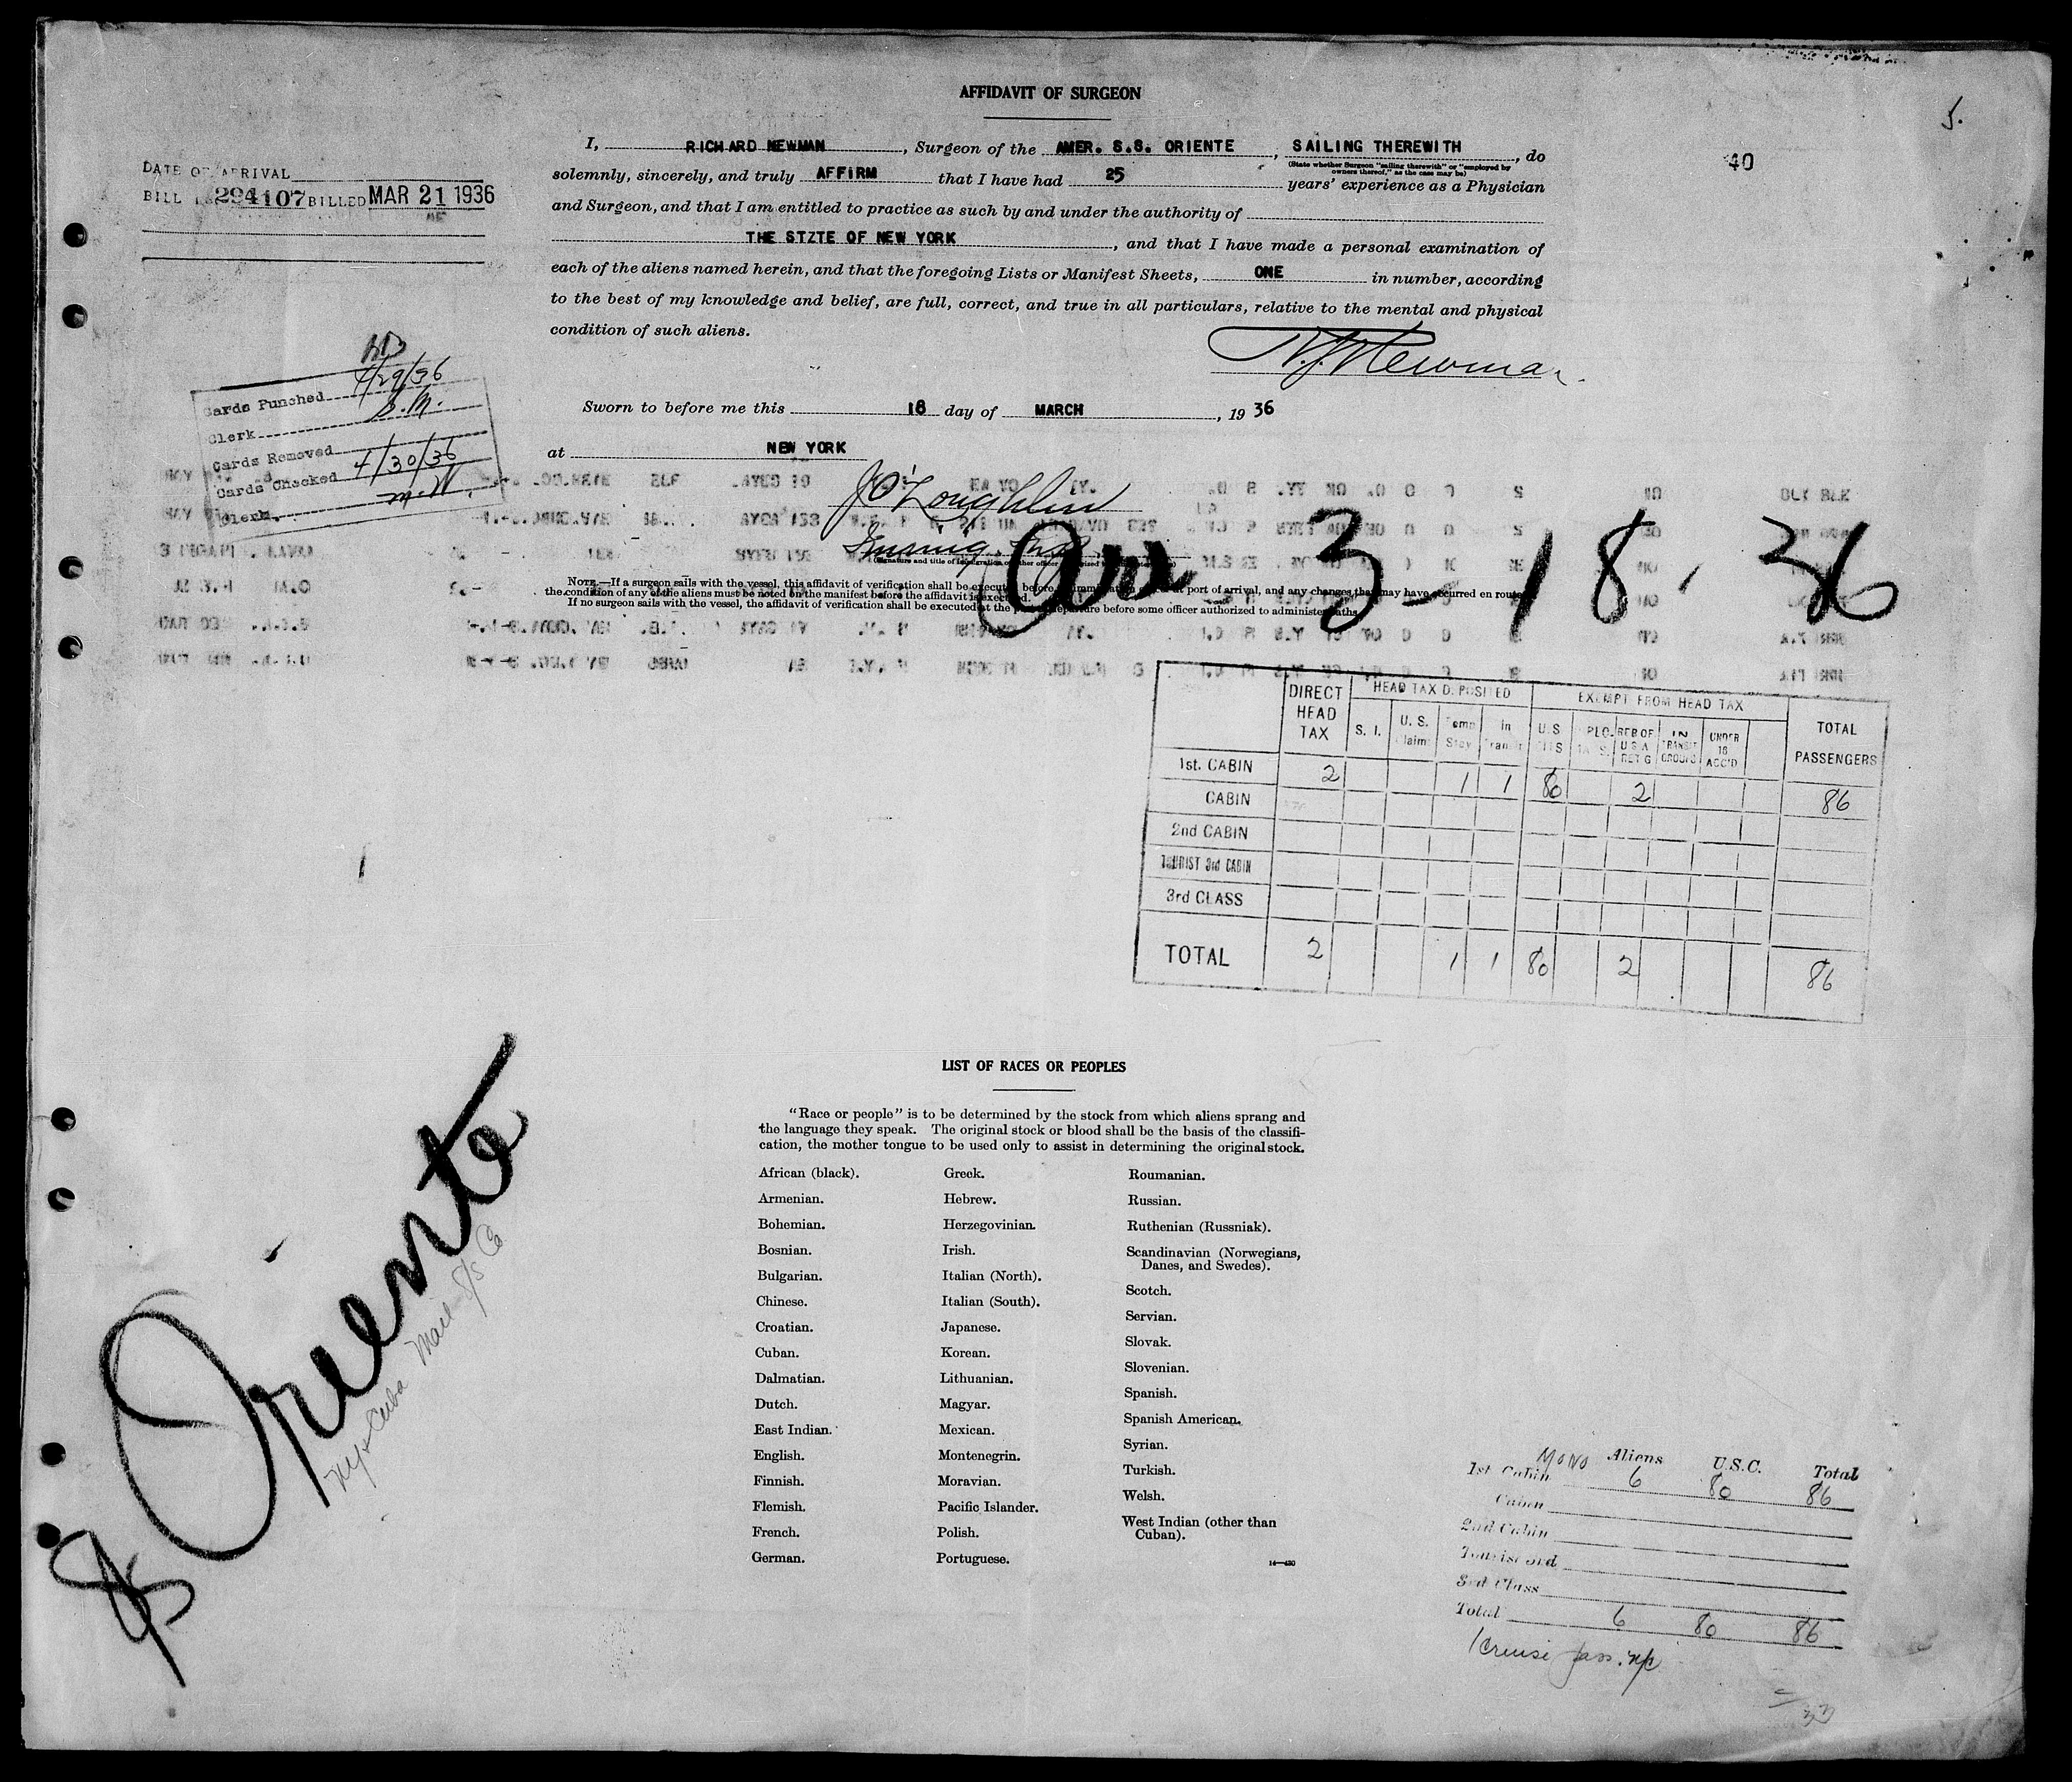 AFFIDAVIT OF SURGEON
5.
40
DATE OF ARRIVAL
BILL 294107 BILLED MAR 21 1936
I, RICHARD NEWMAN, Surgeon of the AMER. S.S. ORIENTE, SAILING THEREWITH, do
(State whether Surgeon "sailing therewith" or "employed by
owners thereof," as the case may be)
solemnly, sincerely, and truly AFFIRM that I have had 25 years' experience as a Physician
and Surgeon, and that I am entitled to practice as such by and under the authority of
THE STZTE OF NEW YORK, and that I have made a personal examination of
each of the aliens named herein, and that the foregoing Lists or Manifest Sheets, ONE in number, according
to the best of my knowledge and belief, are full, correct, and true in all particulars, relative to the mental and physical
condition of such aliens.
Newman
Sworn to before me this 18 day of MARCH, 19 36
at NEW YORK
J O'Loughlin
Cards Punched 4/29/36
Clerk S.M.
Cards Removed
Cards Checked 4/30/36
Clerk M.W.
Arr 3-18-36
NOTE.—If a surgeon sails with the vessel, this affidavit of verification shall be executed before port of arrival, and any changes that may have occurred en route
the condition of any of the aliens must be noted on the manifest before the affidavit is executed.
If no surgeon sails with the vessel, the affidavit of verification shall be executed at the before some officer authorized to administer oaths.
DIRECT HEAD TAX HEAD TAX DEPOSITED EXEMPT FROM HEAD TAX TOTAL PASSENGERS
S. I. U. S. Claim Temp Stay In Transit U.S. CITS REB OF U S A RET G IN TRANSIT GROUPS UNDER 16 ACC'D
1st. CABIN 2 1 1 80 2 86
CABIN
2nd CABIN
TOURIST 3rd CABIN
3rd CLASS
TOTAL 2 1 1 80 2 86
SS Oriente
NY & Cuba Mail S/S Co
LIST OF RACES OR PEOPLES
"Race or people" is to be determined by the stock from which aliens sprang and
the language they speak. The original stock or blood shall be the basis of the classifi-
cation, the mother tongue to be used only to assist in determining the original stock.
African (black).
Armenian.
Bohemian.
Bosnian.
Bulgarian.
Chinese.
Croatian.
Cuban.
Dalmatian.
Dutch.
East Indian.
English.
Finnish.
Flemish.
French.
German.
Greek.
Hebrew.
Herzegovinian.
Irish.
Italian (North).
Italian (South).
Japanese.
Korean.
Lithuanian.
Magyar.
Mexican.
Montenegrin.
Moravian.
Pacific Islander.
Polish.
Portuguese.
Roumanian.
Russian.
Ruthenian (Russniak).
Scandinavian (Norwegians,
Danes, and Swedes).
Scotch.
Servian.
Slovak.
Slovenian.
Spanish.
Spanish American.
Syrian.
Turkish.
Welsh.
West Indian (other than
Cuban).
14—430
MONO Aliens U.S.C. Total
1st Cabin 6 80 86
Cabin
2nd Cabin
Tourist 3rd
3rd Class
Total 6 80 86
1 Cruise pass.